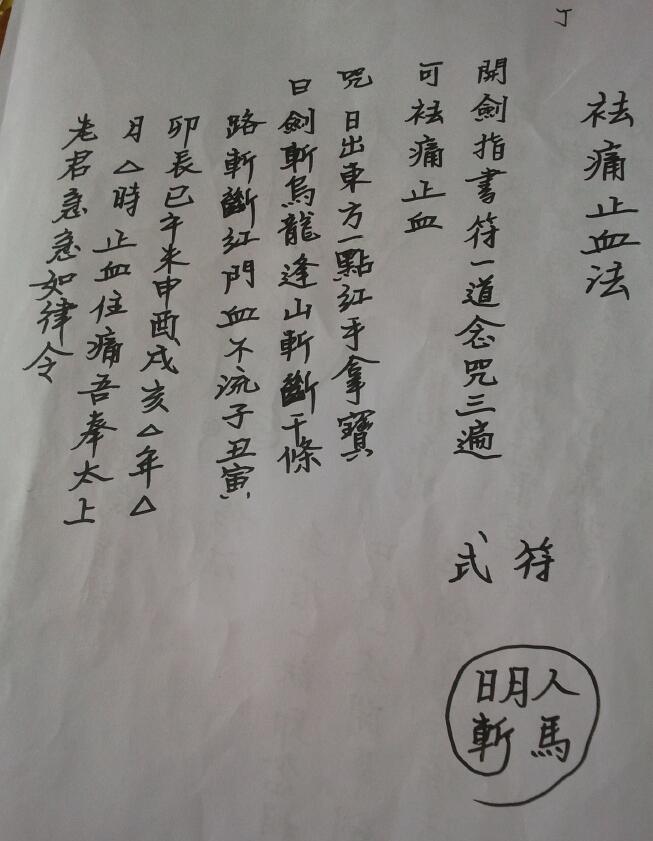 丁
祛痛止血法
開劍指書符一道念咒三遍
可祛痛止血
咒日出東方一點紅手拿寶
曰劍斬烏龍逢山斬斷千條
路斬斷紅門血不流子丑寅
卯辰巳午未申酉戌亥△年△
月△時止血住痛吾奉太上
老君急急如律令
符式
人馬
明斬